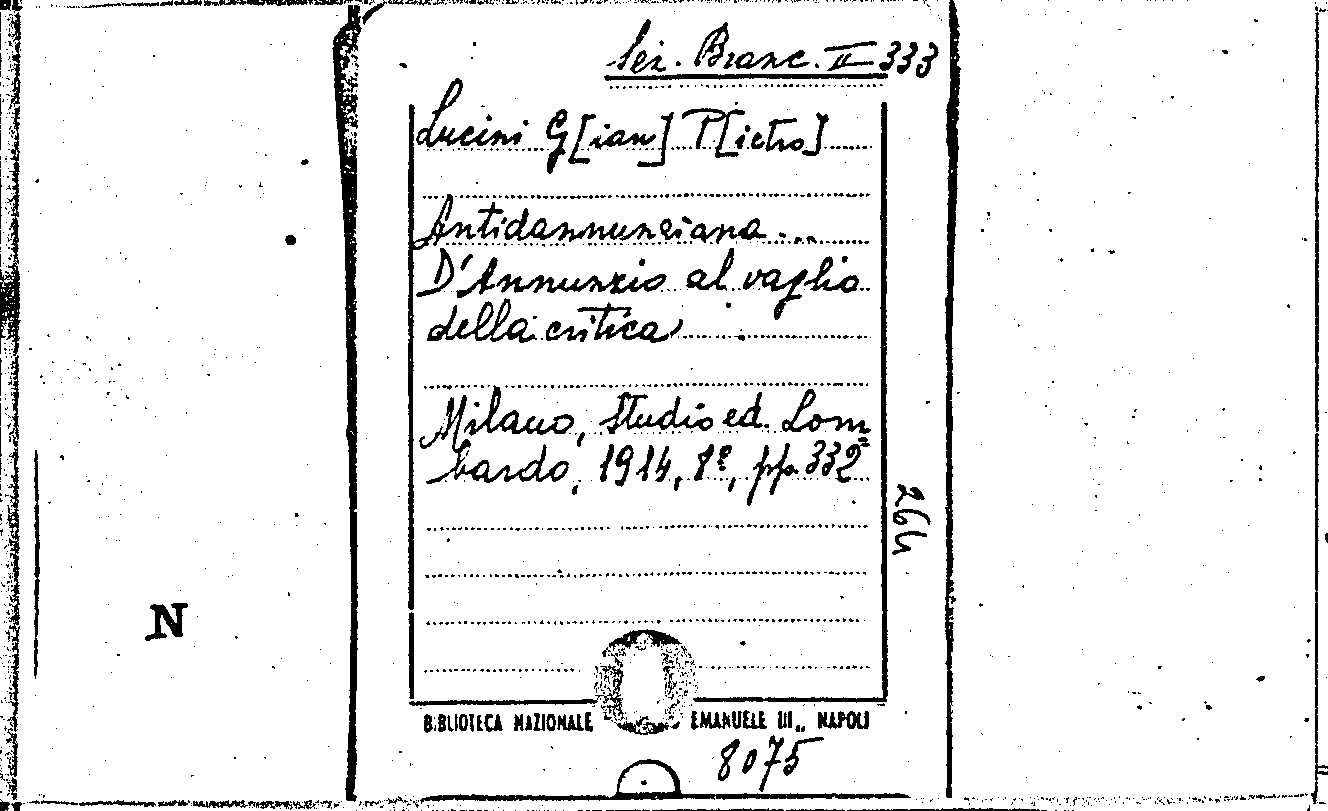 Sez. Branc. II 333
Lucini G[ian] P[ietro]
Antidannunziana...
D'Annunzio al vaglio
della critica
Milano, Studio ed. Lom=
bardo, 1914, 8º, pp. 332
264
N
BIBLIOTECA NAZIONALE EMANUELE III„ NAPOLI
8075